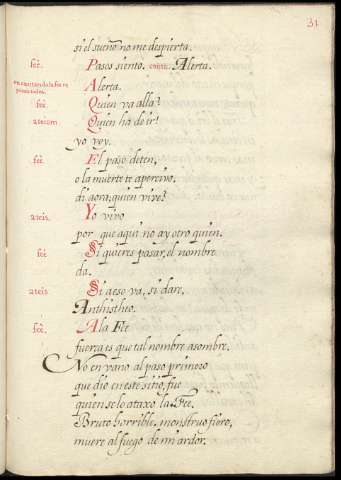 31
si el sueño no me despierta.
feê. Pasos siento. Alerta.
Alerta.
feê. Quien va alla?
ateism Quien ha de ir?
yo voy.
feê. El paso deten,
o la muerte te apercivo,
di aora, quien vive?
ateis. Yo vivo
por que aqui no ay otro quien.
feê Si quieres pasar, el nombre
da.
ateis Si a eso va, si dare,
Anthistheo.
feê. A la Fee
fuerza es que tal nombre asombre.
No en vano al paso primoso
que dio en este sitio, fue
quien se lo ataxo la Fee.
Bruto horrible, monstruo fiero,
muere al fuego de mi ardor.